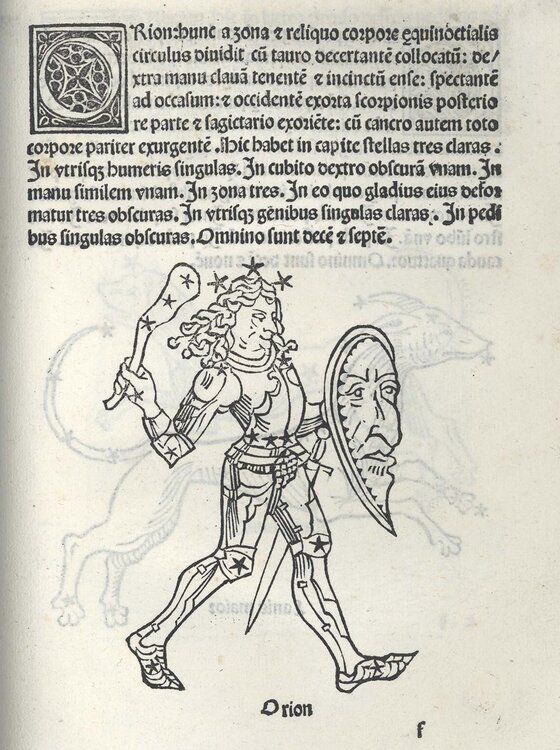 ORion: hunc a zona ⁊ reliquo corpore ęquinoctialis
circulus diuidit cū tauro decertantē collocatū: de/
xtra manu clauā tenentē ⁊ incinctū ense: spectantē
ad occasum: ⁊ occidentē exorta scorpionis posterio
re parte ⁊ sagictario exoriēte: cū cancro autem toto
corpore pariter exurgentē. Hic habet in capite stellas tres claras.
In vtrisqꝫ humeris singulas. In cubito dextro obscurā vnam. In
manu similem vnam. In zona tres. In eo quo gladius eius defor
matur tres obscuras. In vtrisqꝫ gēnibus singulas claras. In pedi
bus singulas obscuras. Omnino sunt decē ⁊ septē.
Orion
f